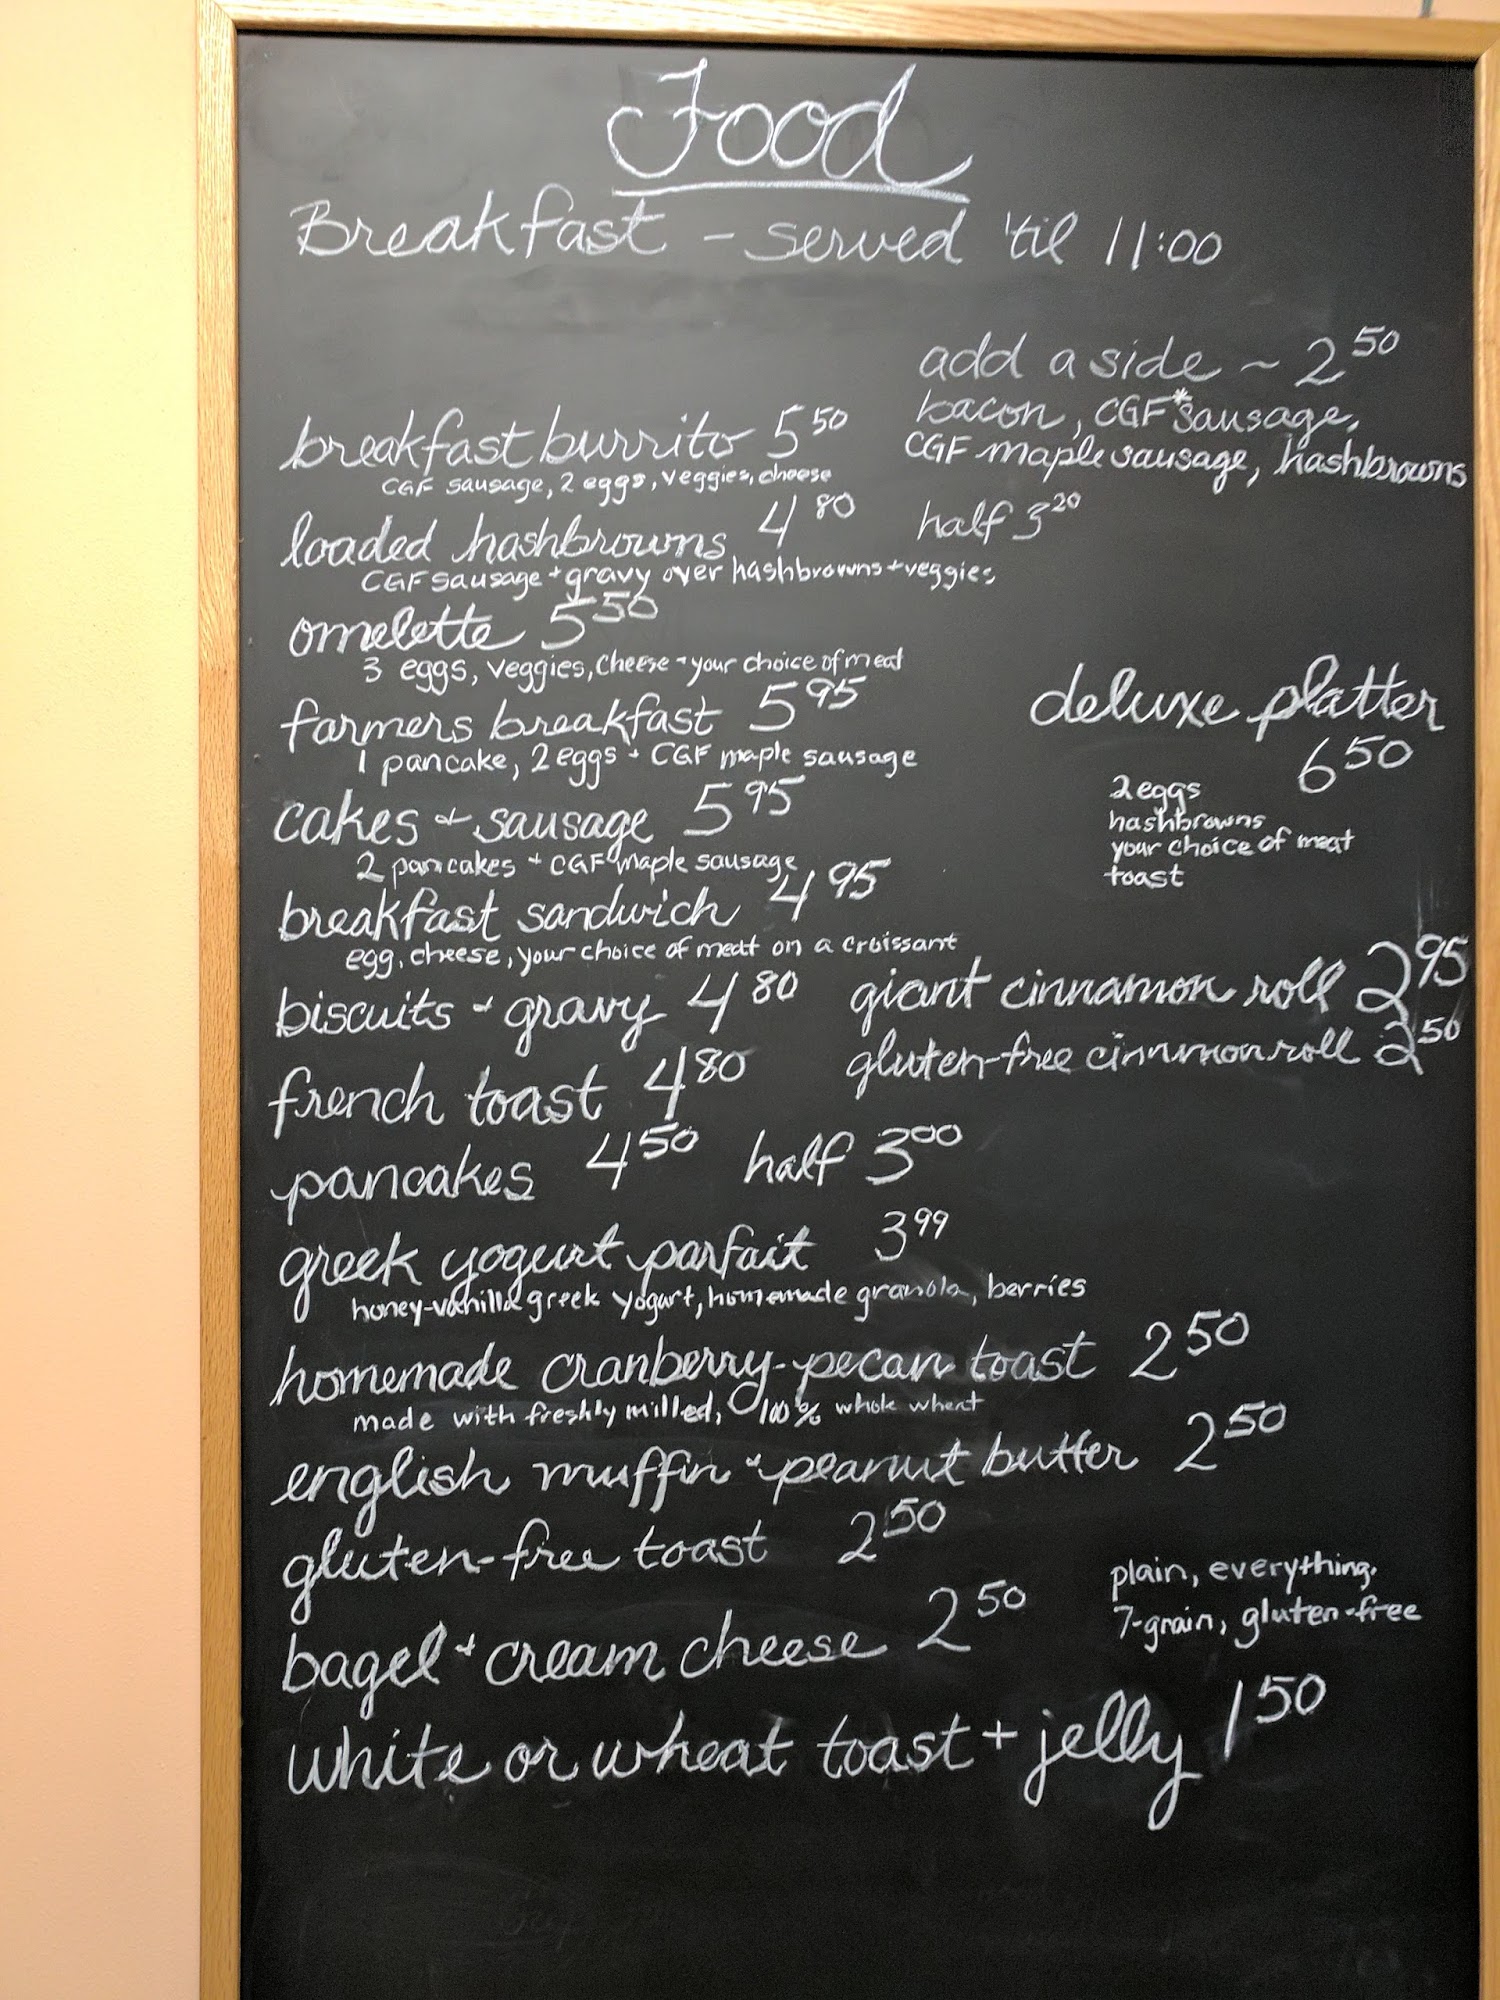 Food
Breakfast - served 'til 11:00
add a side ~ 2 50
bacon, CGF* sausage,
CGF maple sausage, hashbrowns
breakfast burrito 5 50
CGF sausage, 2 eggs, veggies, cheese
loaded hashbrowns 4 80 half 3 20
CGF sausage + gravy over hashbrowns + veggies
omelette 5 50
3 eggs, veggies, cheese + your choice of meat
farmers breakfast 5 95
1 pancake, 2 eggs + CGF maple sausage
deluxe platter
6 50
2 eggs
hashbrowns
your choice of meat
toast
cakes + sausage 5 95
2 pancakes + CGF maple sausage
breakfast sandwich 4 95
egg, cheese, your choice of meat on a croissant
biscuits + gravy 4 80
giant cinnamon roll 2 95
gluten-free cinnmon roll 2 50
french toast 4 80
pancakes 4 50 half 3 00
greek yogurt parfait 3 99
honey-vanilla greek yogurt, homemade granola, berries
homemade cranberry-pecan toast 2 50
made with freshly milled, 100% whole wheat
english muffin + peanut butter 2 50
gluten-free toast 2 50
bagel + cream cheese 2 50
plain, everything,
7-grain, gluten-free
white or wheat toast + jelly 1 50